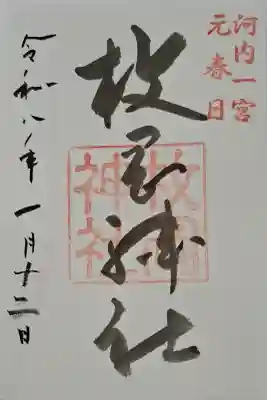 河内一宮
元春日
枚岡神社
枚岡神社
令和八年一月十二日